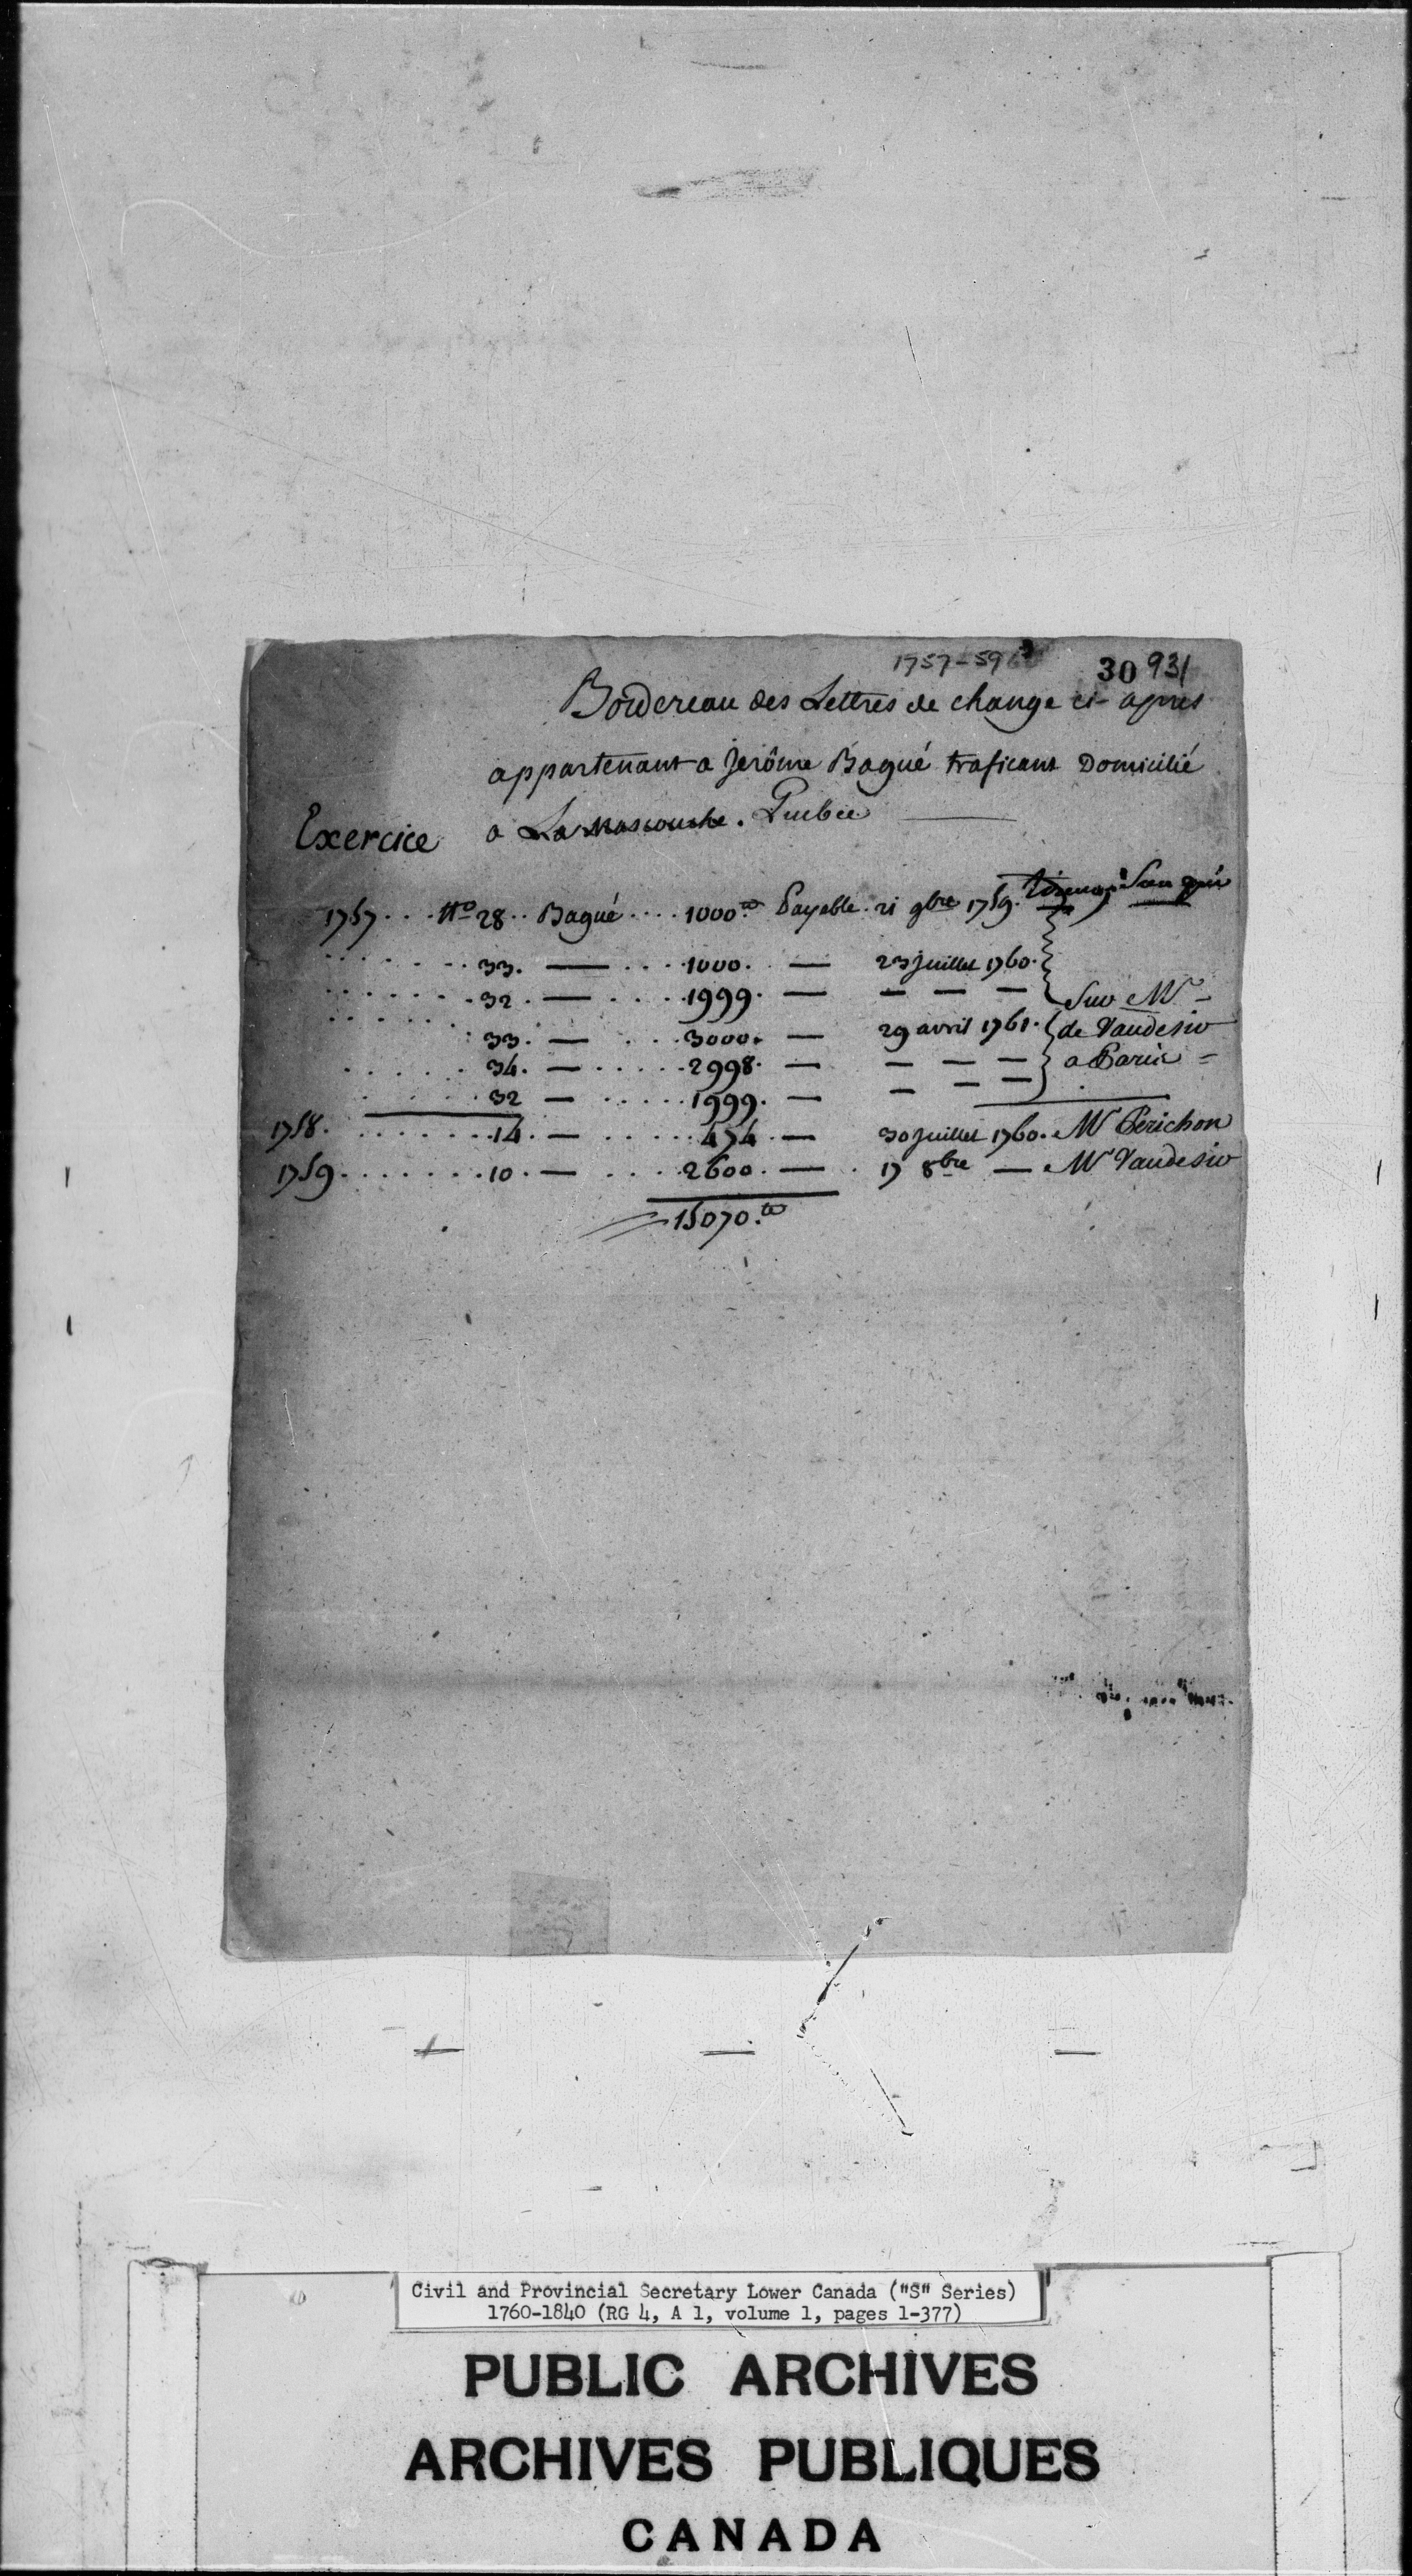 1757-59
30 931
Bordereau des Lettres de change ci-apres
appartenant a Jerôme Bagué traficant Domicilié
a La Mascouche. Quebec
Exercice
1757 . . . N.o 28 . . Bagué . . . . 1000.tt Payable . 21 9bre 1759.
. . . . . . 33. — . . . 1000. — 23 juillet 1760.
. . . . . . 32. — . . . 1999. — — — — Sur Mr
. . . . . . 33. — . . . 3000. — 29 avril 1761. de Vaudesir
. . . . . . 34. — . . . . . 2998. — — — — a Paris
. . . . 32 — . . . . . 1999. — — — —
1758. . . . . . . . 14. — . . . . . 474. — 30 juillet 1760. Mr Perichon
1759. . . . . . . . 10. — . . . . 2600. — . 17 8bre — Mr Vaudesir
15070.tt
Civil and Provincial Secretary Lower Canada ("S" Series)
1760-1840 (RG 4, A 1, volume 1, pages 1-377)
PUBLIC ARCHIVES
ARCHIVES PUBLIQUES
CANADA